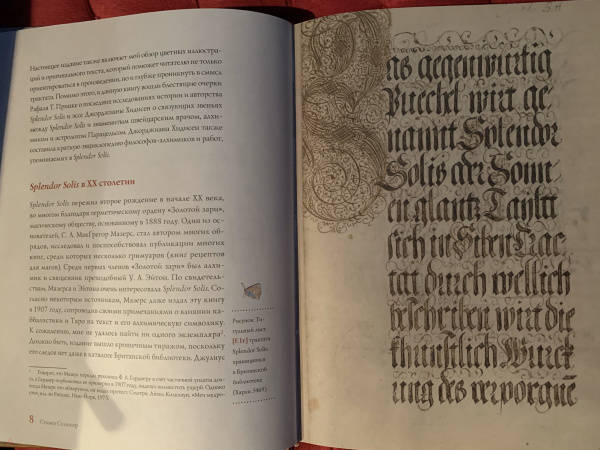 Настоящее издание также включает мой обзор цветных иллюстра-
ций и оригинального текста, который поможет читателю не только
ориентироваться в произведении, но и глубже проникнуть в смысл
трактата. Помимо этого, в данную книгу вошли блестящие очерки
Рафала Т. Принке о последних исследованиях истории и авторства
Splendor Solis и эссе Джорджианы Хидсен о связующих звеньях
между Splendor Solis и знаменитым швейцарским врачом, алхи-
миком и астрологом Парацельсом. Джорджиана Хидсен также
составила краткую энциклопедию философов-алхимиков и работ,
упоминаемых в Splendor Solis.
Splendor Solis в XX столетии
Splendor Solis пережил второе рождение в начале XX века,
во многом благодаря герметическому ордену «Золотой зари», ма-
гическому обществу, основанному в 1888 году. Один из ос-
нователей, С. Л. МакГрегор Мазерс, стал автором многих об-
рядов, исследовал и поспособствовал публикации многих
книг, среди которых несколько гримуаров (книг рецептов
для магов). Среди первых членов «Золотой зари» был алхи-
мик и священник преподобный У. А. Эйтон. По свидетель-
ствам, Мазерса и Эйтона очень интересовала Splendor Solis. Со-
гласно некоторым источникам, Мазерс даже издал эту книгу
в 1907 году, сопроводив своими примечаниями о влиянии каб-
балистики и Таро на текст и его алхимическую символику.
К сожалению, мне не удалось найти ни одного экземпляра¹.
Должно быть, издание вышло крошечным тиражом, поскольку
его следов нет даже в каталоге Британской библиотеки. Джулиус
Рисунок: Ти-
тульный лист
[F.1r] трактата
Splendor Solis,
хранящегося
в Британской
библиотеке
(Харли 3469)
8
Стивен Скиннер
Das gegenwurtig
Puechel wirt ge
namtt Splendor
Solis oder Sonn
en glantz Taÿltt
sich in Siben Trac
tat durch wellich
beschriben wirt die
khunstlich Wurck
ung des verporgne